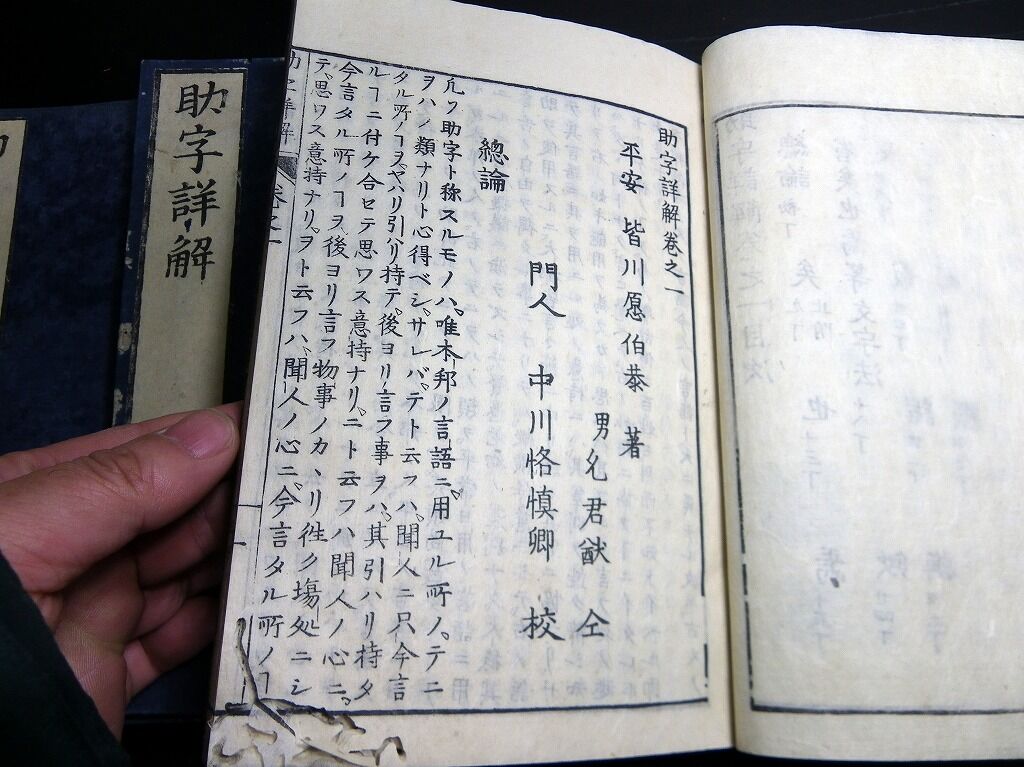 助字詳解
助字詳解卷之一
平安 皆川愿伯恭 著
男 允君猷 仝
門人 中川恪慎卿 校
總論
凢ソ助字ト称スルモノハ、唯本邦ノ言語ニ用ユル所ノ、テニ
ヲハノ類ナリト心得ベシ、サレバ、テト云フハ、聞人ニ只今言
タル所ノヿヲ、ヤハリ引ハリ持テ、後ヨリ言フ事ヲハ、其引ハリ持タ
ルヿニ付ケ合セテ思ワス意持ナリ、ニト云フハ聞人ノ心ニ、
今言タル所ノヿヲ後ヨリ言フ物事ノカヽリ徃ク塲処ニシ
テ、思ワス意持ナリ、ヲト云フハ、聞人ノ心ニ、今言タル所ノヿ
卷之一